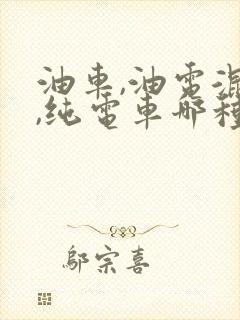 油車,油電混
,純電車哪種
鄔宗喜